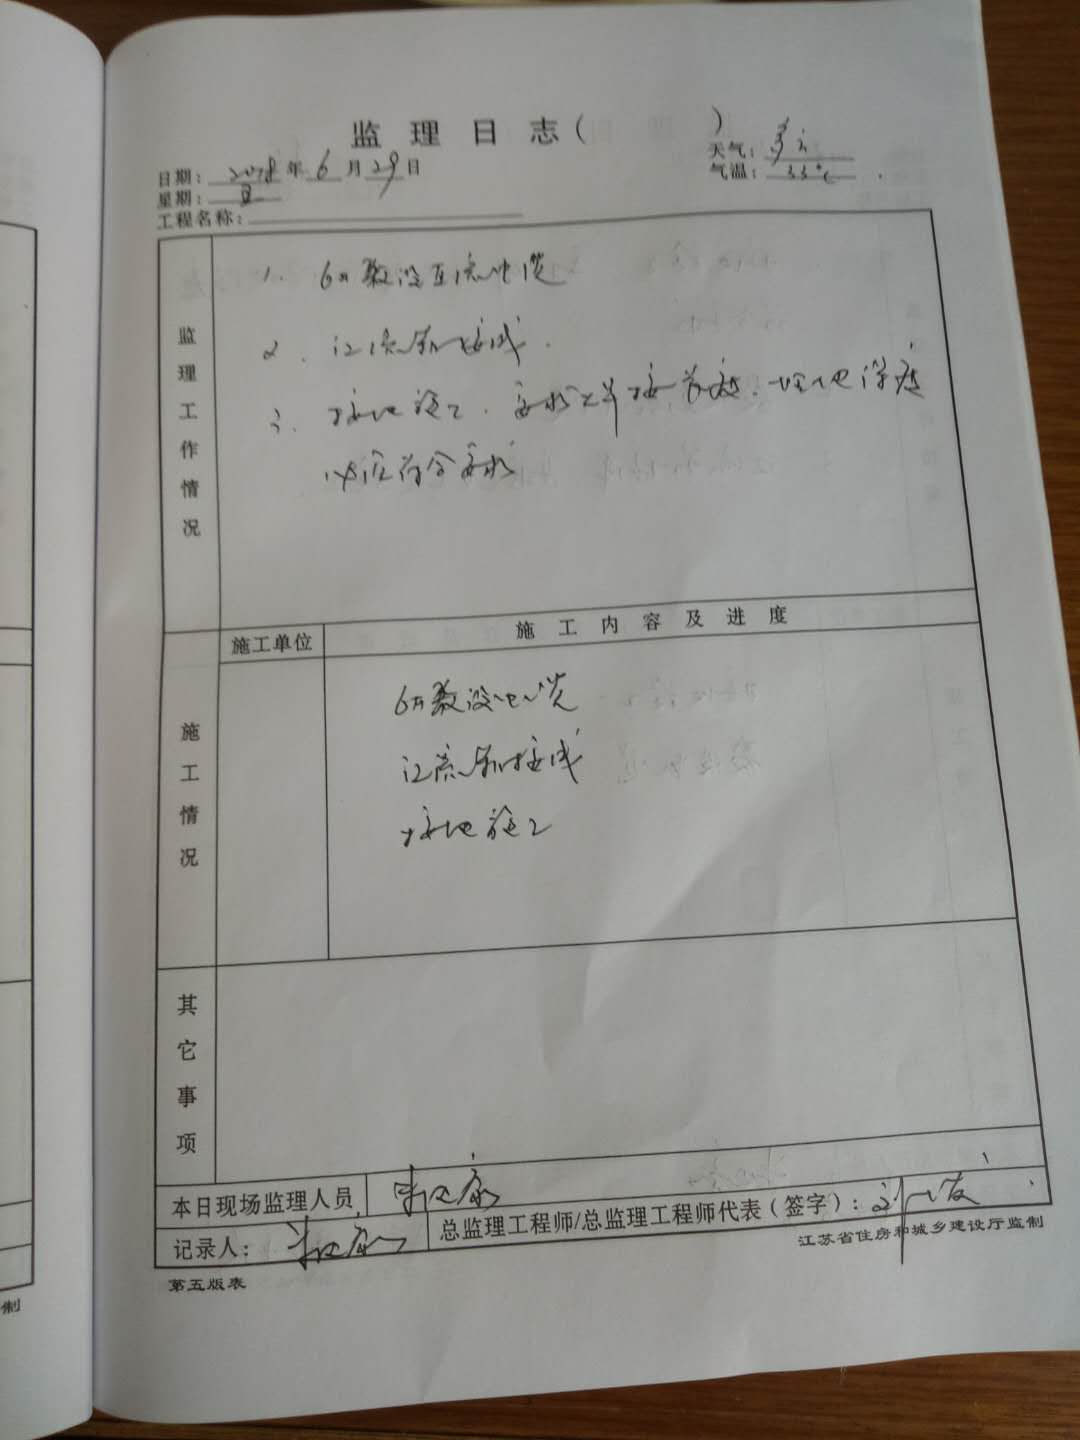 监理日志（ ）
日期：2018年6月29日
天气：多云
星期：五
气温：33℃
工程名称：
监理工作情况
1. 6#敷设直流电缆
2. 汇流箱接线.
3. 接地施工. 要求搭接长度. 埋地深度
必须符合要求
施工单位
施工内容及进度
施工情况
6#敷设电缆
汇流箱接线
接地施工
其它事项
本日现场监理人员
记录人：
总监理工程师/总监理工程师代表（签字）：
第五版表
江苏省住房和城乡建设厅监制
制